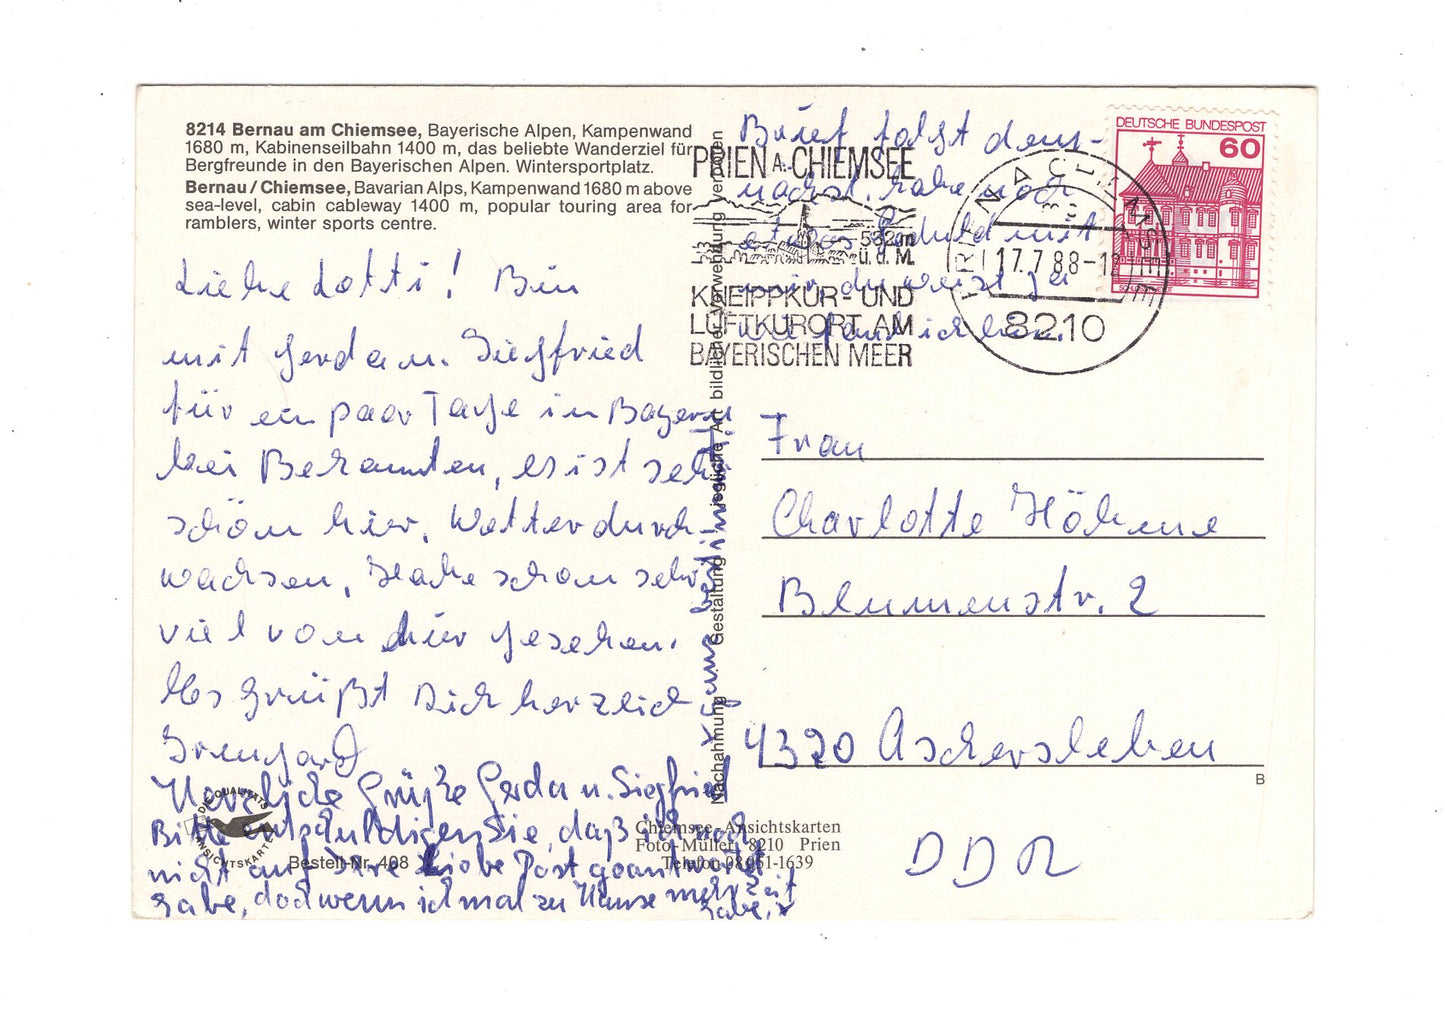 8214 Bernau am Chiemsee, Bayerische Alpen, Kampenwand
1680 m, Kabinenseilbahn 1400 m, das beliebte Wanderziel für
Bergfreunde in den Bayerischen Alpen. Wintersportplatz.
Bernau / Chiemsee, Bavarian Alps, Kampenwand 1680 m above
sea-level, cabin cableway 1400 m, popular touring area for
ramblers, winter sports centre.
Liebe Lotti! Bin
mit Gerda u. Siegfried
für ein paar Tage in Bayern
bei Bekannten, es ist sehr
schön hier, Wetter durch-
wachsen, Habe schon sehr
viel von hier gesehen.
Es grüßt Dich herzlich
Irmgard
Herzliche Grüße Gerda u. Siegfried
Bitte entschuldigen Sie, daß ich noch
nicht auf Ihre liebe Post geantwortet
habe, doch wenn ich mal zu Hause mehr Zeit
habe, x
x ganz bestimmt!
Nachahmung Gestaltung jegliche Art bildlicher Verwendung verboten
Brief folgt dem-
nächst, habe noch
etwas Geduld mit
mir, du weist ja
wie faul ich bin.
PRIEN A. CHIEMSEE
532m
ü.d.M.
KNEIPPKUR- UND
LUFTKURORT AM
BAYERISCHEN MEER
PRIEN A CHIEMSEE
mg
17.7.88-12
8210
DEUTSCHE BUNDESPOST
60
Frau
Charlotte Höhene
Blumenstr. 2
4320 Aschersleben
B
DDR
DIE QUALITÄTS
ANSICHTSKARTE
Bestell-Nr. 408
Chiemsee-Ansichtskarten
Foto Müller, 8210 Prien
Telefon 08051-1639